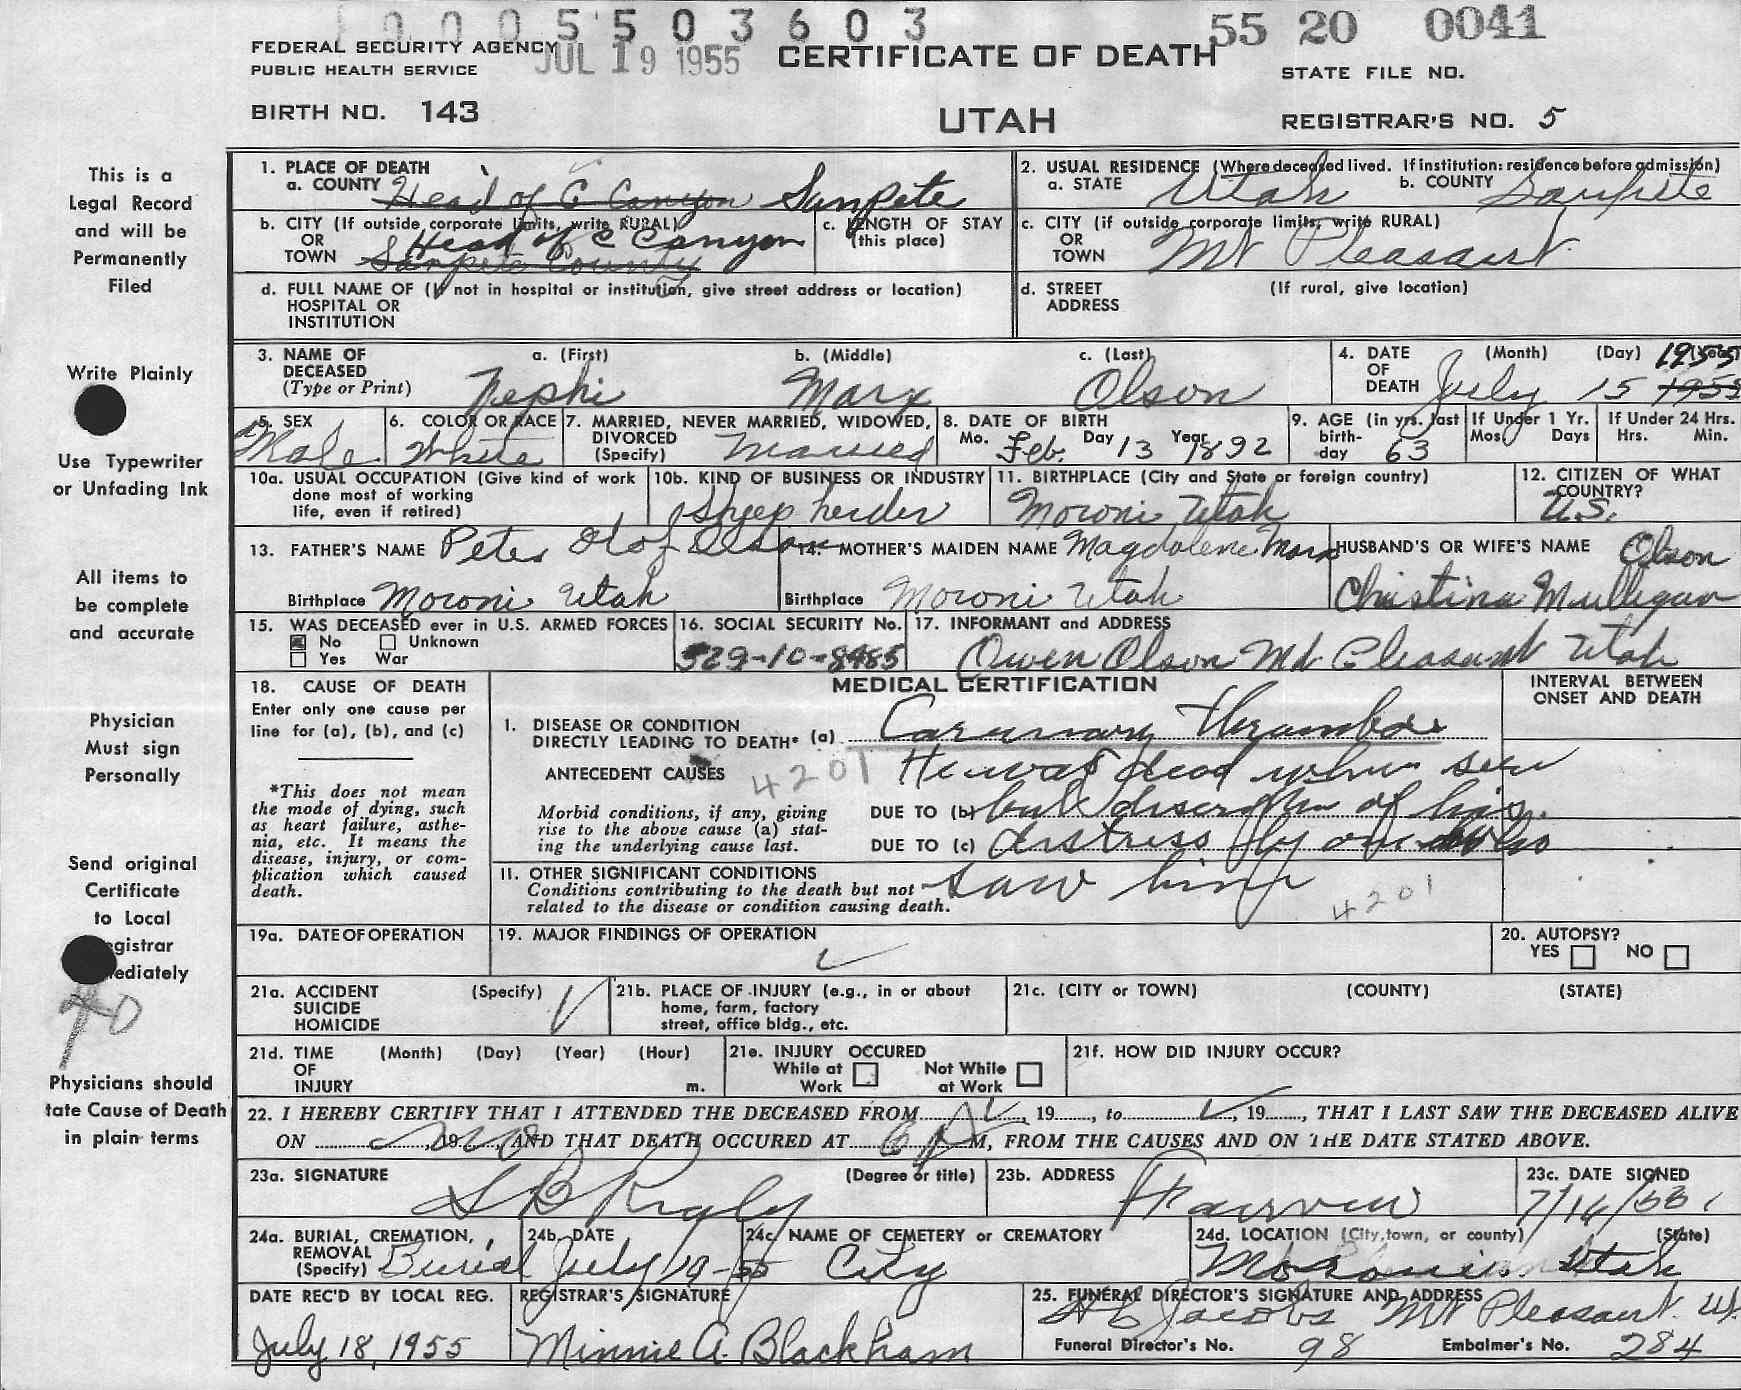 0 0 0 5 5 0 3 6 0 3
55 20 0041
FEDERAL SECURITY AGENCY
PUBLIC HEALTH SERVICE
JUL 19 1955
CERTIFICATE OF DEATH
STATE FILE NO.
BIRTH NO. 143
UTAH
REGISTRAR'S NO. 5
This is a
Legal Record
and will be
Permanently
Filed
Write Plainly
Use Typewriter
or Unfading Ink
All items to
be complete
and accurate
Physician
Must sign
Personally
Send original
Certificate
to Local
egistrar
ediately
Physicians should
tate Cause of Death
in plain terms
1. PLACE OF DEATH
a. COUNTY Head of C Canyon Sanpete
2. USUAL RESIDENCE (Where deceased lived. If institution: residence before admission)
a. STATE Utah b. COUNTY Sanpete
b. CITY (If outside corporate limits, write RURAL)
OR
TOWN Head of C Canyon
Sanpete County
c. LENGTH OF STAY
(this place)
c. CITY (if outside corporate limits, write RURAL)
OR
TOWN Mt Pleasant
d. FULL NAME OF (If not in hospital or institution, give street address or location)
HOSPITAL OR
INSTITUTION
d. STREET (If rural, give location)
ADDRESS
3. NAME OF
DECEASED
(Type or Print)
a. (First) b. (Middle) c. (Last)
Nephi Marx Olson
4. DATE
OF
DEATH
(Month) (Day) (Year)
1955
July 15 1955
5. SEX
Male
6. COLOR OR RACE
White
7. MARRIED, NEVER MARRIED, WIDOWED,
DIVORCED
(Specify) Married
8. DATE OF BIRTH
Mo. Feb. Day 13 Year 1892
9. AGE (in yrs. last
birth-
day 63
If Under 1 Yr.
Mos. Days
If Under 24 Hrs.
Hrs. Min.
10a. USUAL OCCUPATION (Give kind of work
done most of working
life, even if retired)
10b. KIND OF BUSINESS OR INDUSTRY
Sheep herder
11. BIRTHPLACE (City and State or foreign country)
Moroni Utah
12. CITIZEN OF WHAT
COUNTRY?
U.S.
13. FATHER'S NAME Peter Olof Olson
Birthplace Moroni Utah
14. MOTHER'S MAIDEN NAME Magdalene Marx
Birthplace Moroni Utah
HUSBAND'S OR WIFE'S NAME Olson
Christina Mulligan
15. WAS DECEASED ever in U.S. ARMED FORCES
No Unknown
Yes War
16. SOCIAL SECURITY No.
529-10-8485
17. INFORMANT and ADDRESS
Owen Olson Mt Pleasant Utah
18. CAUSE OF DEATH
Enter only one cause per
line for (a), (b), and (c)
*This does not mean
the mode of dying, such
as heart failure, asthe-
nia, etc. It means the
disease, injury, or com-
plication which caused
death.
MEDICAL CERTIFICATION
INTERVAL BETWEEN
ONSET AND DEATH
I. DISEASE OR CONDITION
DIRECTLY LEADING TO DEATH* (a)
ANTECEDENT CAUSES 4201 He was dead when seen
Morbid conditions, if any, giving
rise to the above cause (a) stat-
ing the underlying cause last.
DUE TO (b) but description of his
DUE TO (c) distress by one who
11. OTHER SIGNIFICANT CONDITIONS
Conditions contributing to the death but not
related to the disease or condition causing death.
saw him
4201
19a. DATE OF OPERATION
19. MAJOR FINDINGS OF OPERATION
20. AUTOPSY?
YES NO
21a. ACCIDENT (Specify)
SUICIDE
HOMICIDE
21b. PLACE OF INJURY (e.g., in or about
home, farm, factory
street, office bldg., etc.
21c. (CITY or TOWN) (COUNTY) (STATE)
21d. TIME (Month) (Day) (Year) (Hour)
OF
INJURY m.
21e. INJURY OCCURED
While at Work
Not While at Work
21f. HOW DID INJURY OCCUR?
22. I HEREBY CERTIFY THAT I ATTENDED THE DECEASED FROM , 19 , to , 19 , THAT I LAST SAW THE DECEASED ALIVE
ON , 19 AND THAT DEATH OCCURED AT 6 P M, FROM THE CAUSES AND ON THE DATE STATED ABOVE.
23a. SIGNATURE (Degree or title)
23b. ADDRESS
Fairview
23c. DATE SIGNED
24a. BURIAL, CREMATION,
REMOVAL
(Specify) Burial
24b. DATE
July 19-55
24c. NAME OF CEMETERY OR CREMATORY
City
24d. LOCATION (City, town, or county) (State)
Moroni Utah
DATE REC'D BY LOCAL REG.
July 18, 1955
REGISTRAR'S SIGNATURE
Minnie A. Blackham
25. FUNERAL DIRECTOR'S SIGNATURE AND ADDRESS
Jacobs Mt Pleasant. Ut.
Funeral Director's No. 98 Embalmer's No. 284